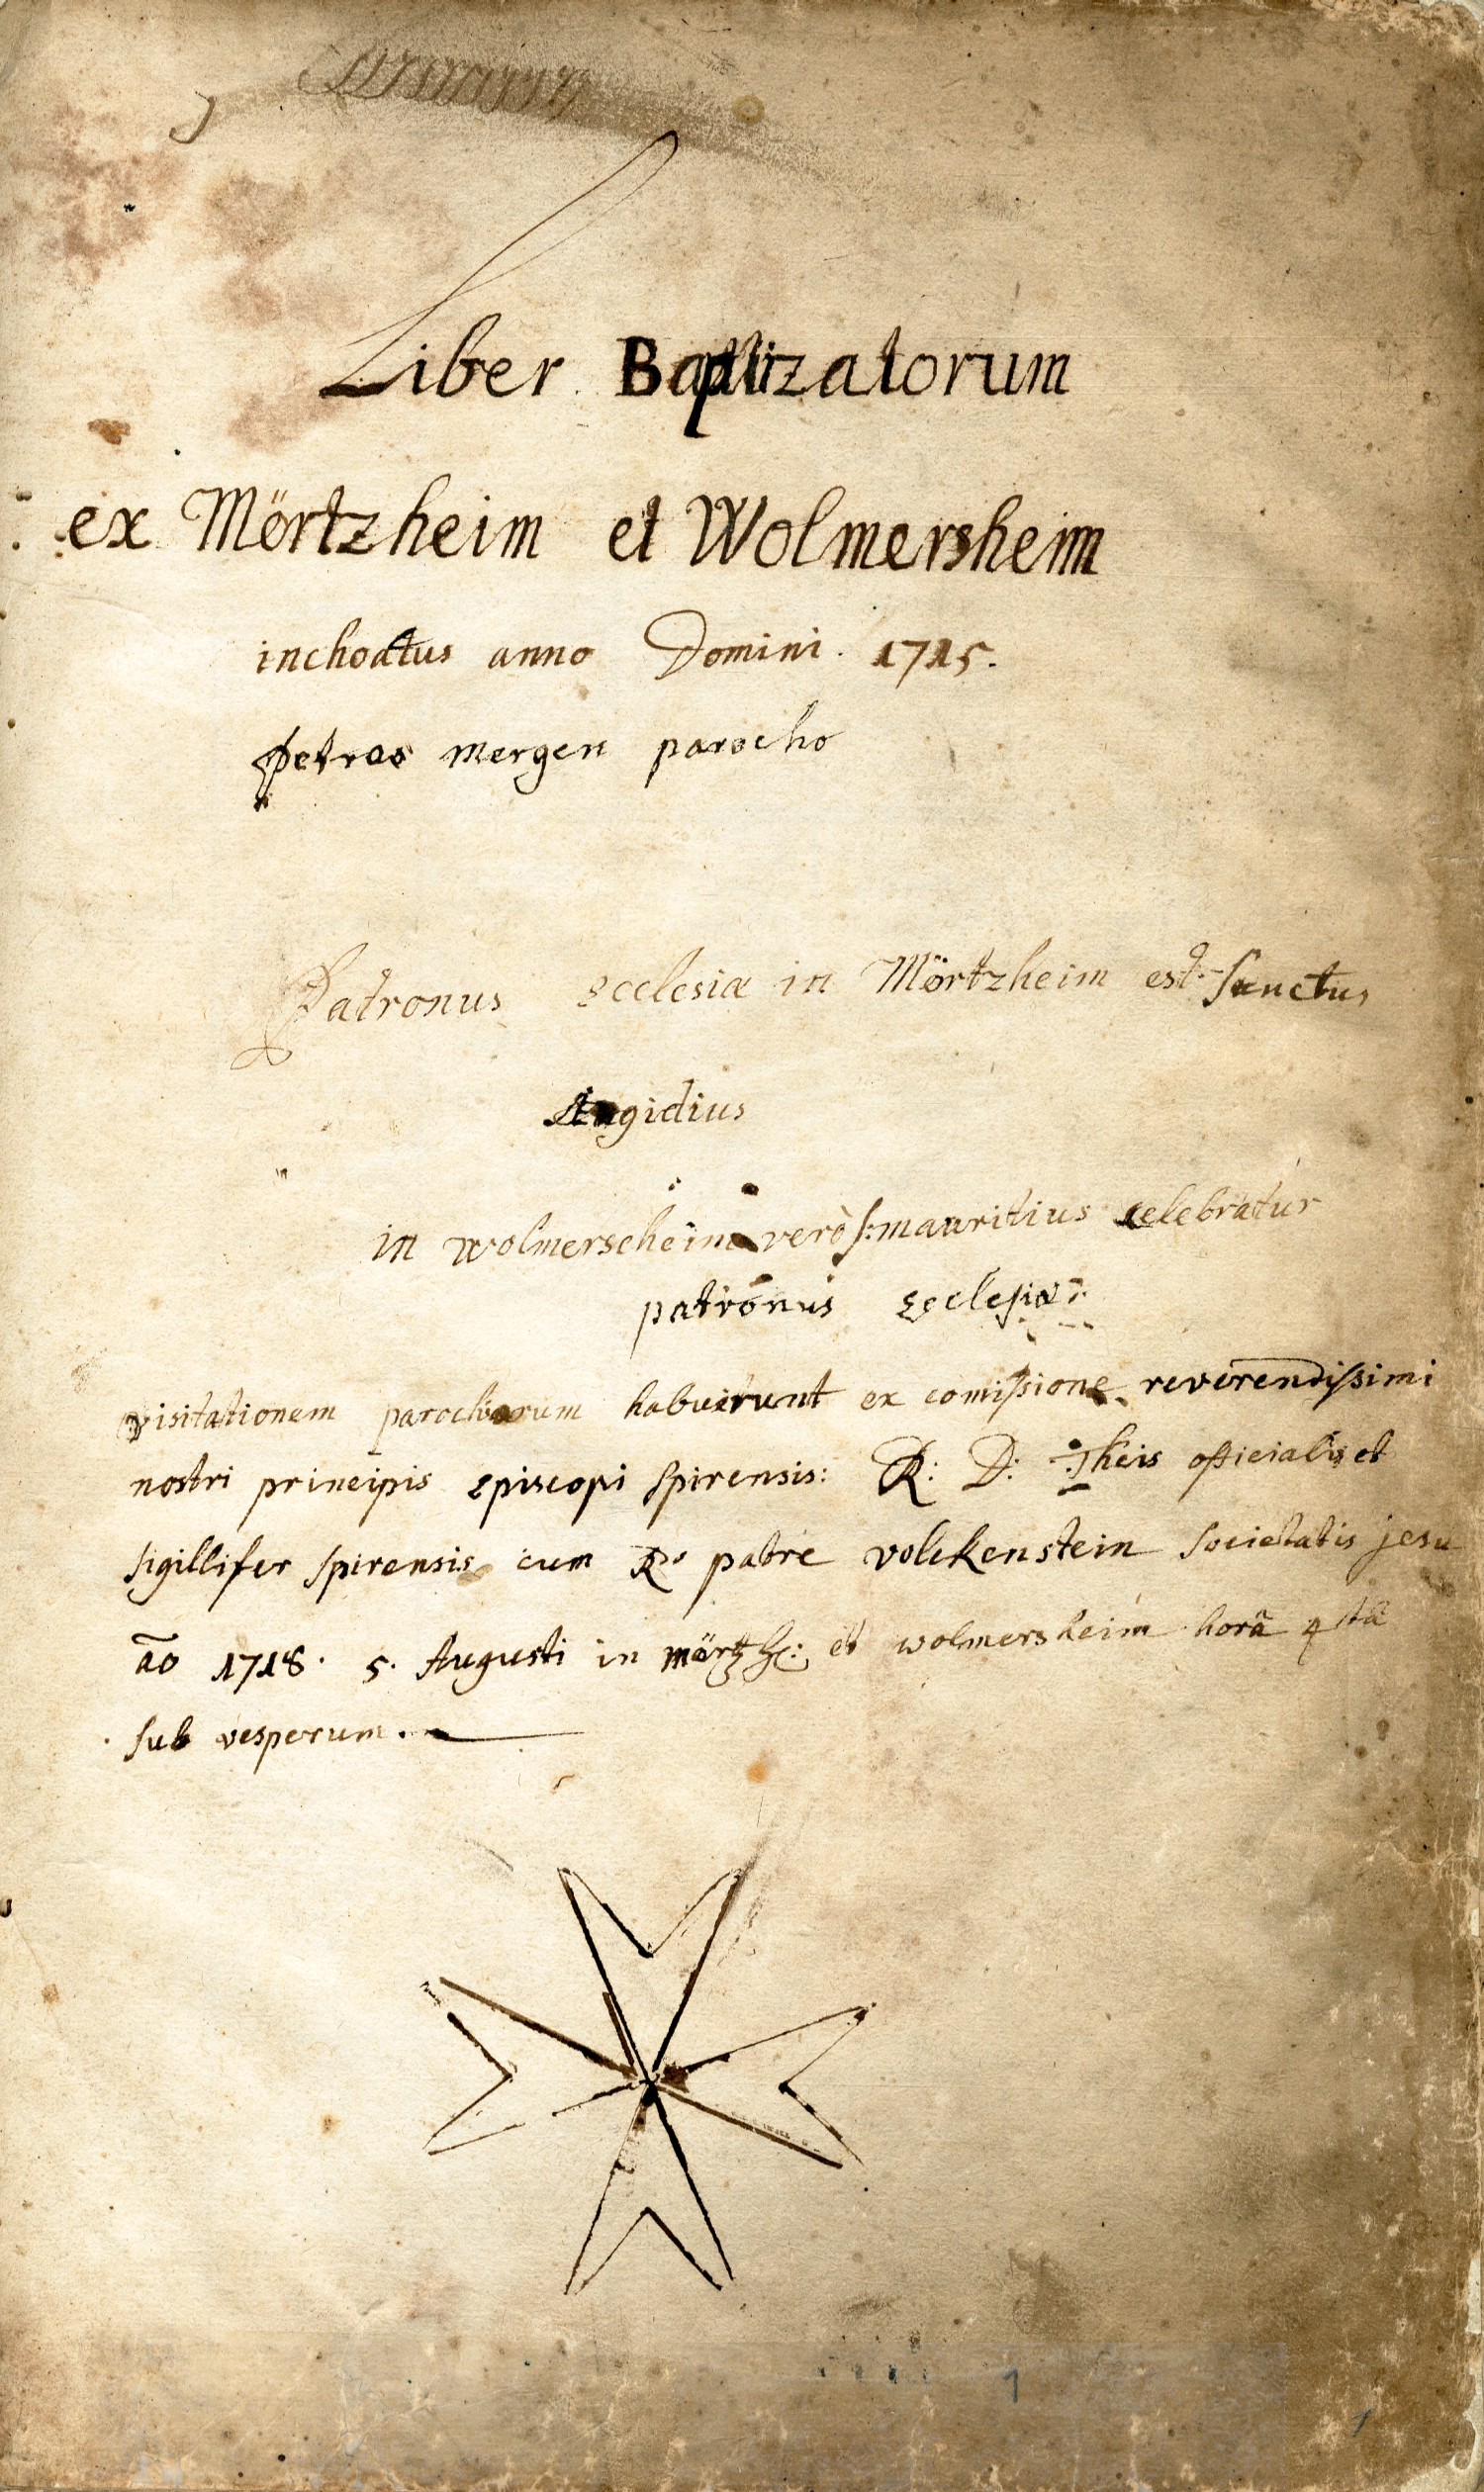 Liber Baptizatorum
ex Mörtzheim et Wolmersheim
inchoatus anno Domini. 1715.
petro mergen parocho
Patronus ecclesiæ in Mörtzheim est Sanctus
Aegidius
in wolmerscheim verò s: mauritius celebratur
patronus ecclesiæ:
visitationem parochiarum habuerunt ex comissione reverendissimi
nostri principis episcopi spirensis: R: D: Theis officialis et
sigillifer spirensis cum R. patre volckenstein societatis jesu
ao 1718. 5. Augusti in mörtzh: et wolmersheim horâ 4ta
sub vesperum.
1
1